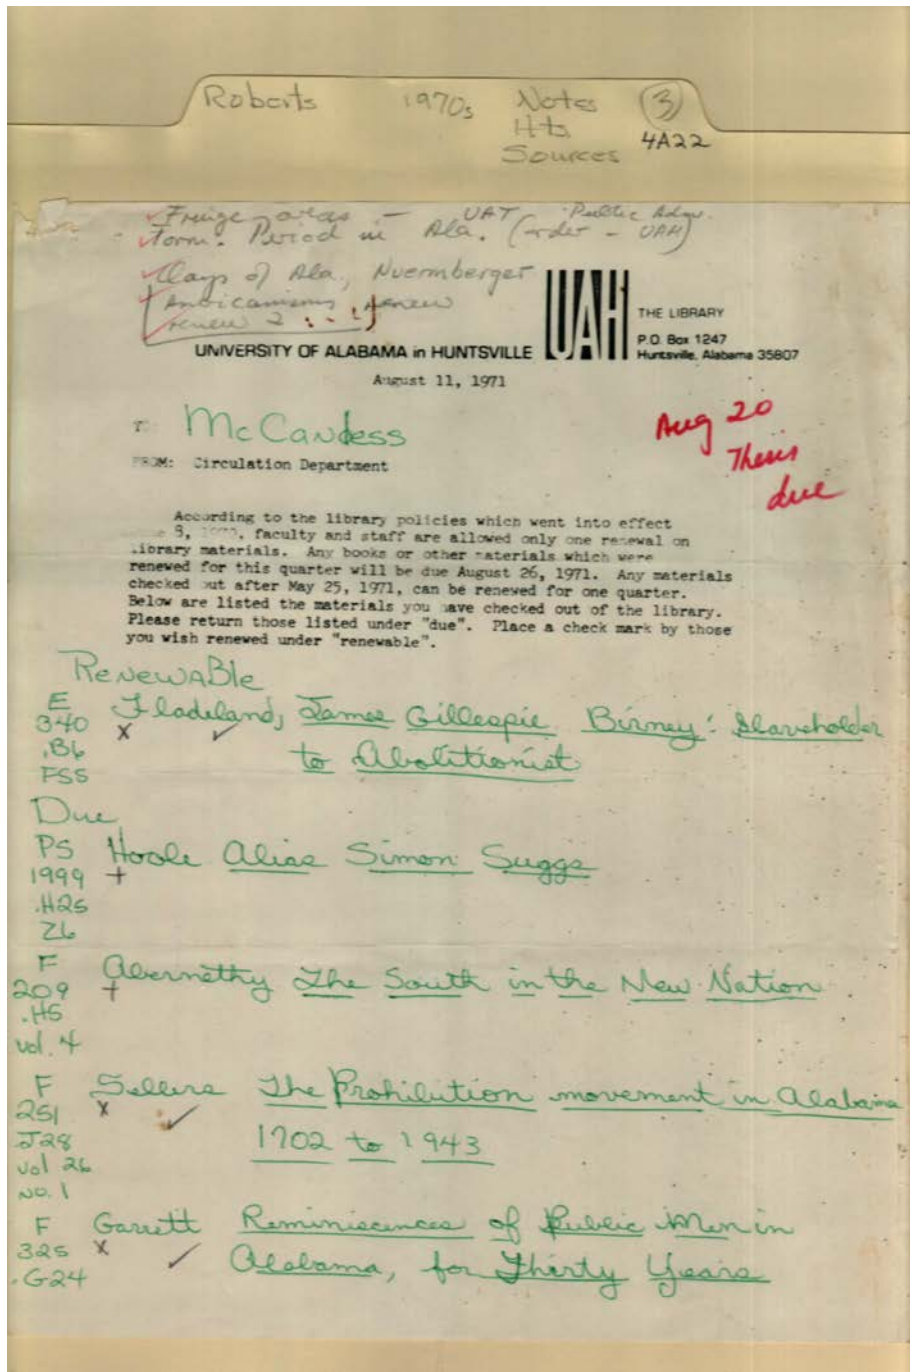 Roberts 1970s Notes 3
Hts 4A22
Sources
Fringe areas - UAT Public Adm.
Form. Period in Ala. (order - UAH)
Clays of Ala., Nuermberger
renew
renew 2
UAH
THE LIBRARY
P.O. Box 1247
UNIVERSITY OF ALABAMA in HUNTSVILLE Huntsville, Alabama 35807
August 11, 1971
McCandess
Aug 20
Thesis
due
FROM: Circulation Department
According to the library policies which went into effect
8, faculty and staff are allowed only one renewal on
library materials. Any books or other materials which were
renewed for this quarter will be due August 26, 1971. Any materials
checked out after May 25, 1971, can be renewed for one quarter.
Below are listed the materials you have checked out of the library.
Please return those listed under "due". Place a check mark by those
you wish renewed under "renewable".
Renewable
E Fladeland, James Gillespie Birney: Slaveholder
340 x ✓
.B6 to Abolitionist
F55
Due
PS Hoole Alias Simon Suggs
1999 +
.H25
Z6
F Abernethy The South in the New Nation
209 +
.H5
vol. 4
F Sellers The Prohibution movement in Alabama
251 x ✓
J28 1702 to 1943
vol 26
no. 1
F Garrett Reminiscences of Public Men in
325 x ✓
.G24 Alabama, for Thirty Years